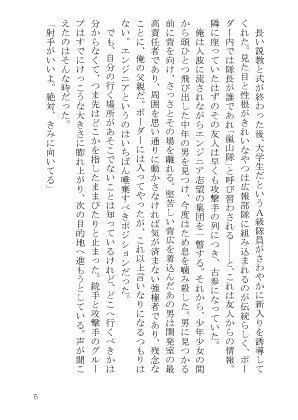 長い説教と式が終わった後、大学生だというA級隊員がさわやかに新入りを誘導して
くれた。見た目と性根がきれいなやつは広報部隊に組み込まれるのが伝統らしく、ボー
ダー内では隊長が誰であれ「嵐山隊」と呼び習わされる――と、これは友人からの情報。
隣に座っていたはずのその友人は早くも攻撃手の列につき、古参になっていた。
俺は人波に流されながらエンジニア志望の集団を一瞥する。それから、少年少女の間
から頭ひとつ飛び出した中年の男を見つけ、今度はため息を噛み殺した。男に見つかる
前に背を向け、さっさとその場を離れる。堅苦しい背広を着込んだあの男は開発室の最
高責任者であり、周囲を思い通りに動かさなければ気が済まない強権者であり、残念な
ことに、俺の父親だ。ボーダーには入ってやったが、これ以上言いなりになるつもりは
ない。エンジニアというのはいちばん唾棄すべきポジションだった。
でも、自分の行く場所があそこでないことは知っているけれど、どこへ行くべきかは
分からなくて、つま先はどこかを指したままぴたりと止まった。銃手と攻撃手のグルー
プはすでにけっこうな大きさに膨れ上がり、次の目的地へ進もうとしている。声が聞こ
えたのはそんな時だった。
「射手がいいよ。絶対、きみに向いてる」
5